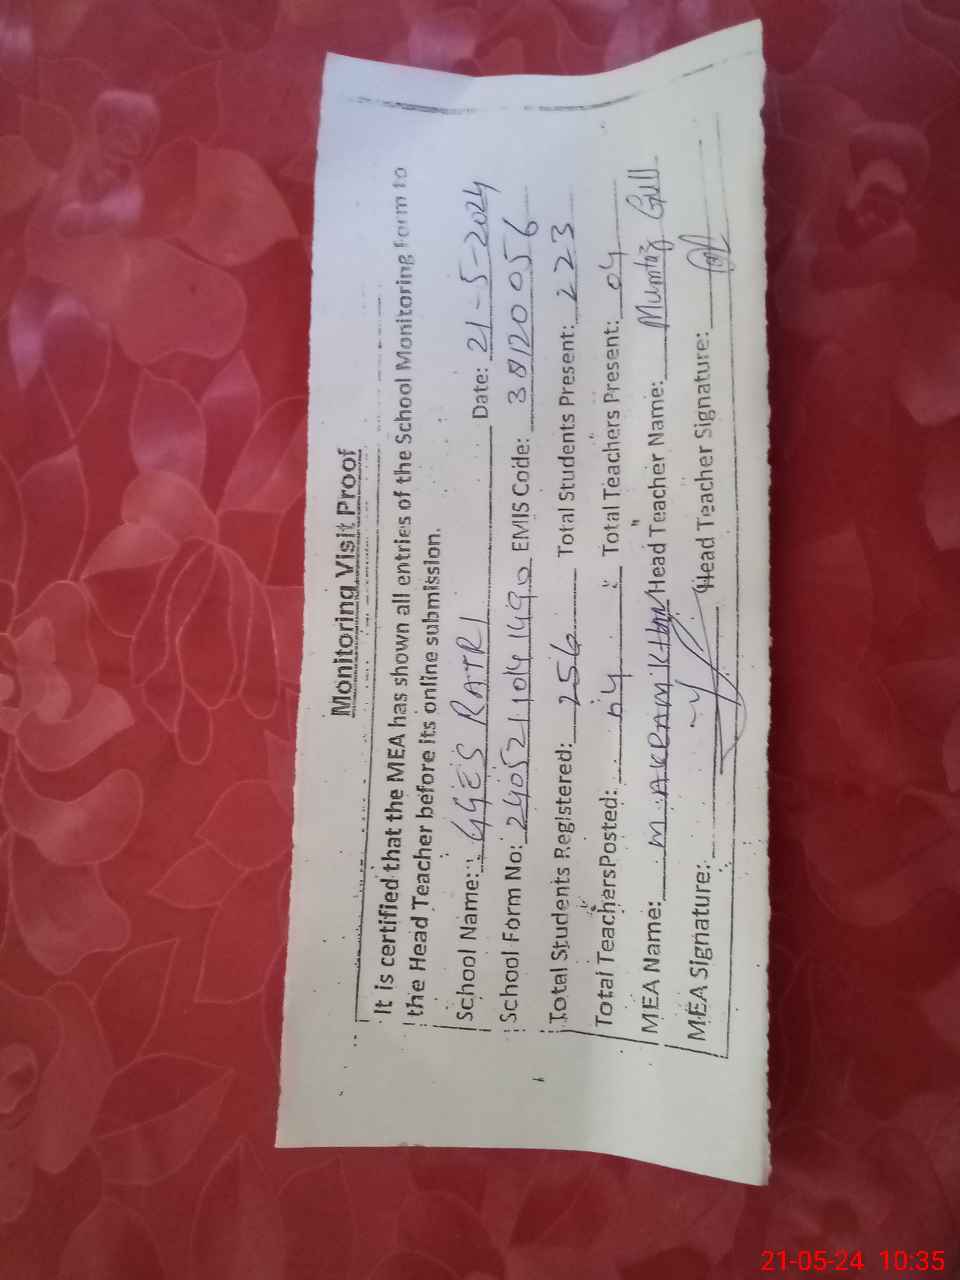 Monitoring Visit Proof
It is certified that the MEA has shown all entries of the School Monitoring Form to
the Head Teacher before its online submission.
School Name: GGES RATRI Date: 21-5-2024
School Form No: 2405211041490 EMIS Code: 38120056
Total Students Registered: 256 Total Students Present: 223
Total Teachers Posted: 04 Total Teachers Present: 04
MEA Name: M. AKRAM KHAN Head Teacher Name: Mumtaz Gull
MEA Signature: Head Teacher Signature:
21-05-24 10:35